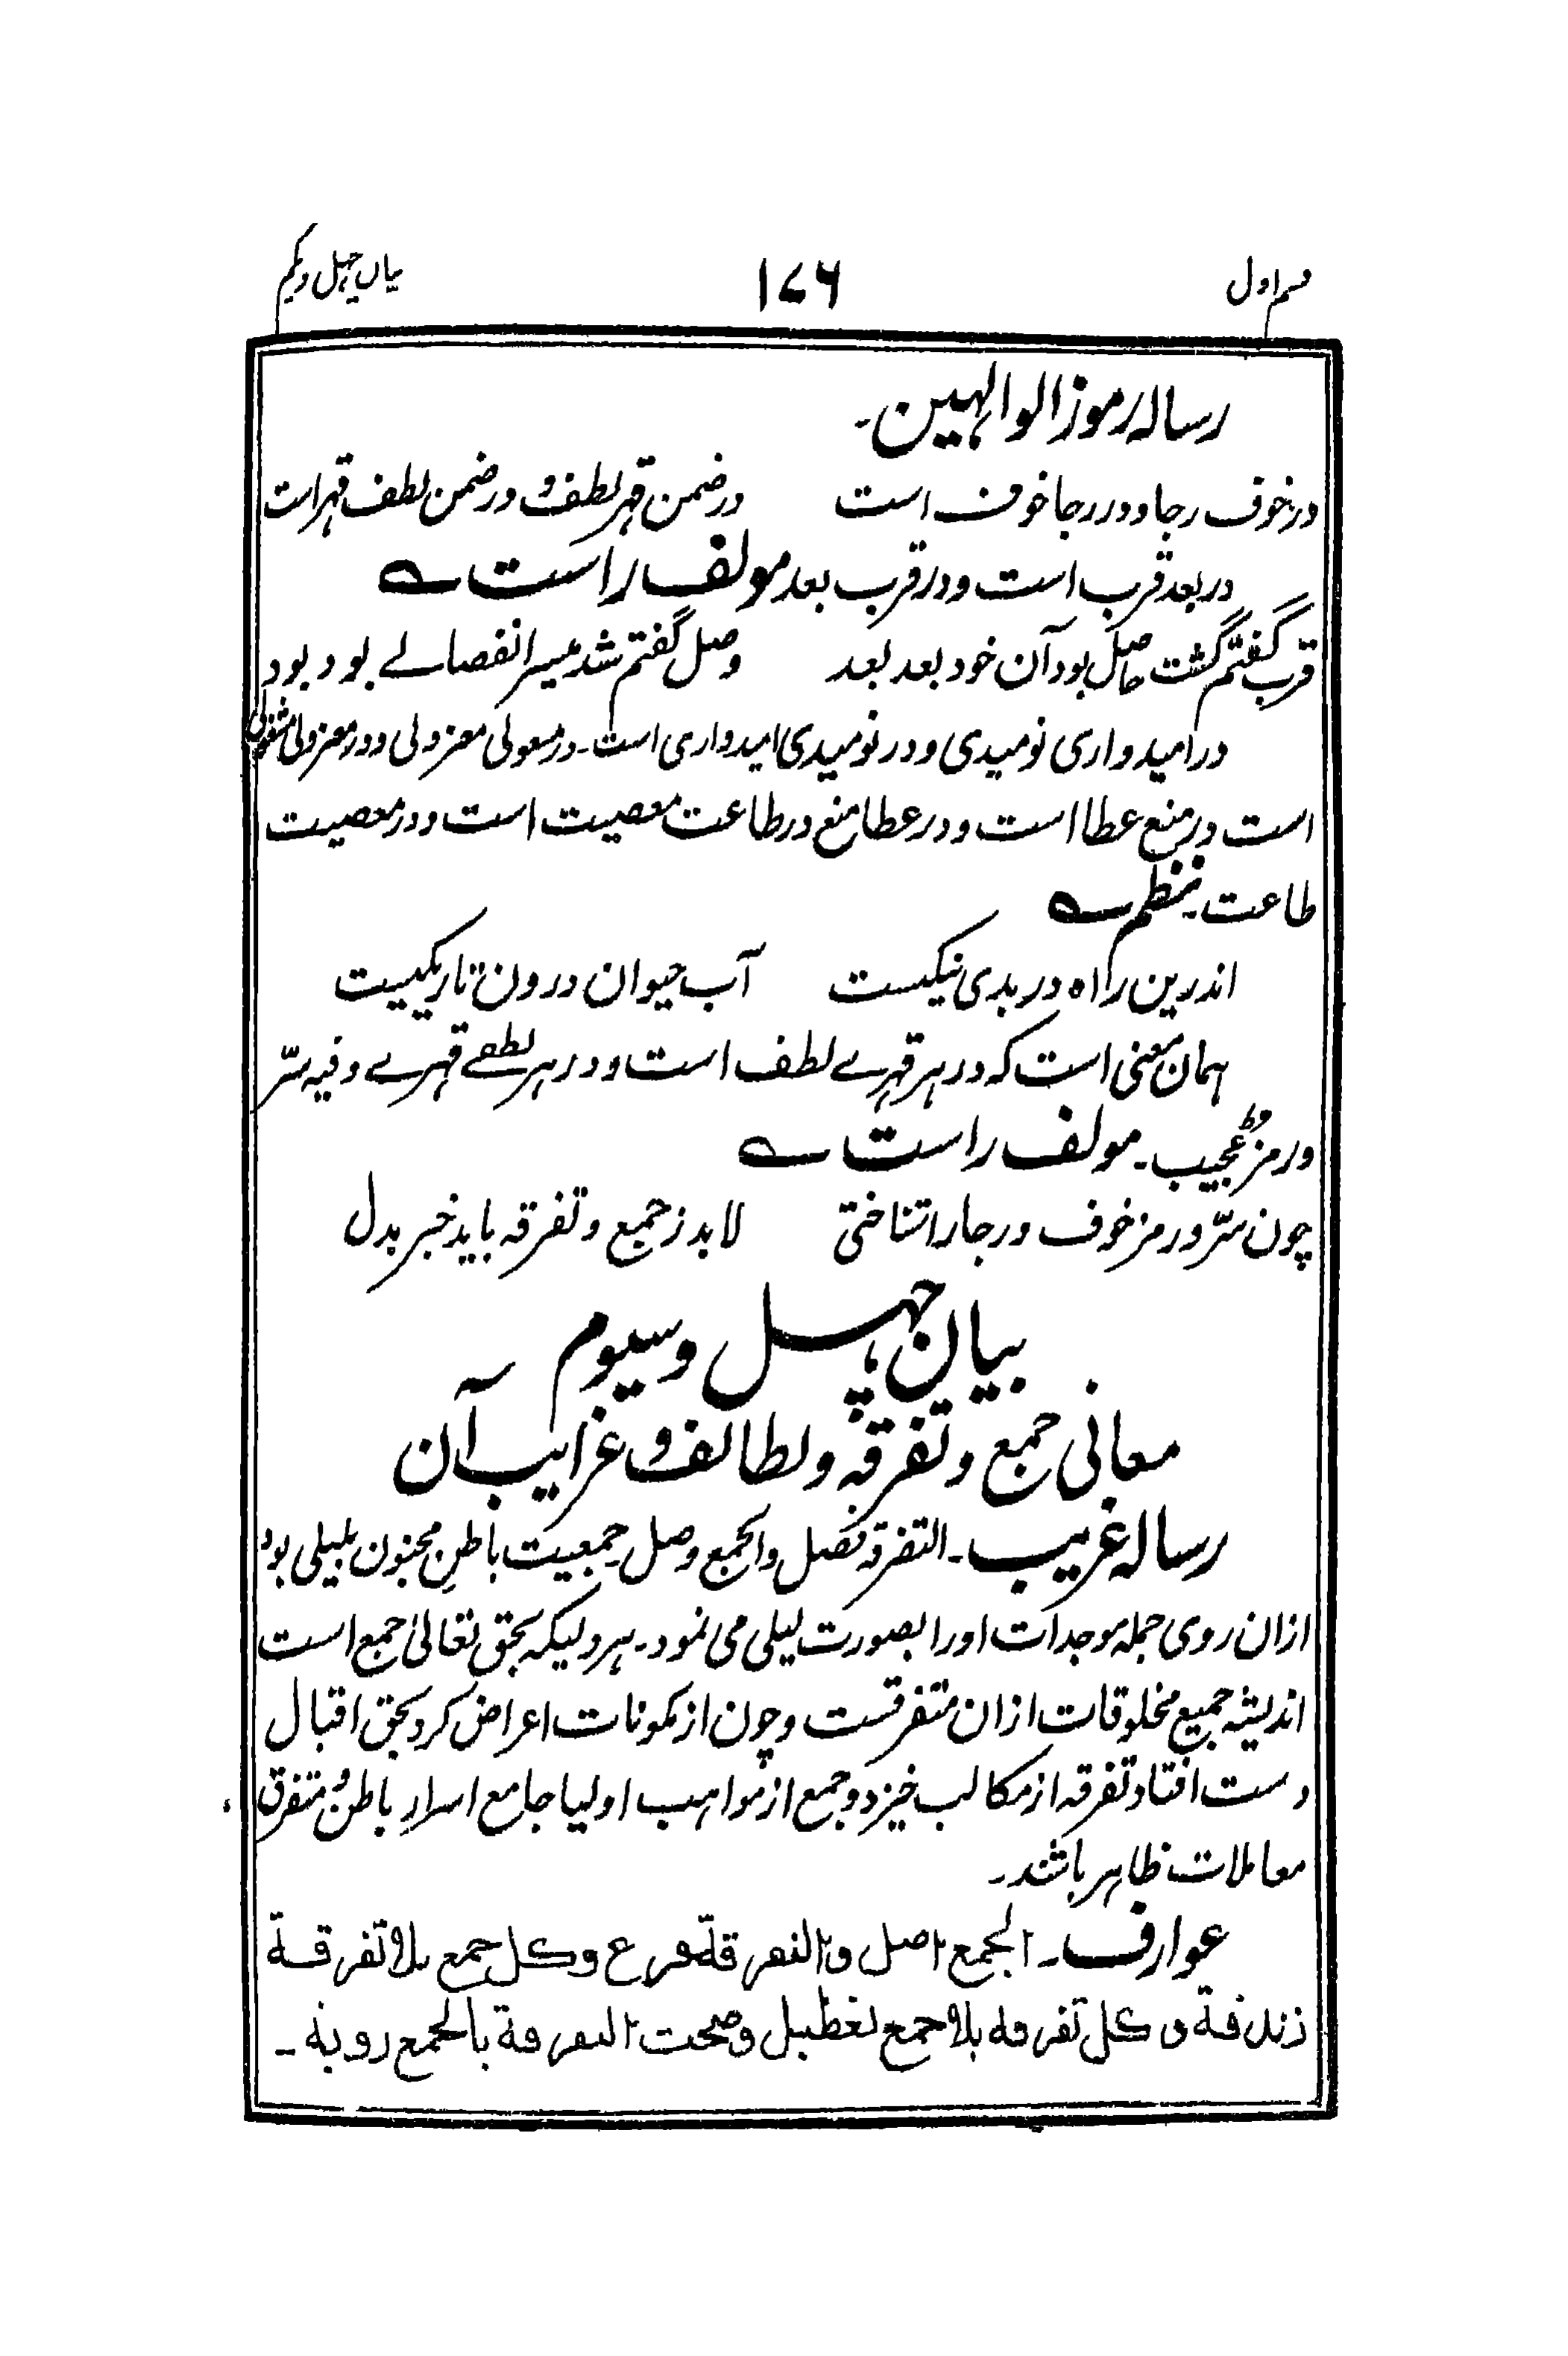 قسم اول
۱۷۶
بیان چہل ویکم
رسالہ رموز الوالہین۔
در خوف رجا و در رجا خوف است در ضمن قہر لطف و در ضمن لطف قہر است
در بعد قرب است و در قرب بعد مولف راست ے
قرب گفتم گشت حاصل بود آن خود بعد بعد وصل گفتم شد میسر انفصالے بود بود
در امیدواری نومیدی و در نومیدی امیدواری است۔ در معولی معزولی و در معزولی مشغولی
است در منع عطا است و در عطا منع در طاعت معصیت است و در معصیت
طاعت۔ نظم ے
اندرین راہ در بدی نیکست آب حیوان درون تاریکیست
ہمان معنی است کہ در ہر قہرے لطف است و در ہر لطفے قہرے وفیہ سرّ
ورمز عجیب۔ مولف راست ے
چون سرّ و رمز خوف و رجا را شناختی لابد ز جمع و تفرقہ باید خبر بدل
بیان چہل و سیوم
معانی جمع و تفرقہ و لطائف و غرایب آن
رسالہ غریب۔ التفرقہ فصل والجمع وصل جمعیت باطن مجنون بلیلی بود
ازان روی جملہ موجدات اورا بصورت لیلی می نمود۔ ہر دلیکہ بحق تعالیٰ جمع است
اندیشہ جمیع مخلوقات ازان متفرقست و چون از مکونات اعراض کرد بحق اقبال
دست افتاد تفرقہ از مکالب خیزد و جمع از مواہب اولیا جامع اسرار باطن و متفرق
معاملات ظاہر باشند۔
عوارف۔ الجمع اصل والتفرقة فرع وکل جمع بلا تفرقة
زندقة وکل تفرقه بلا جمع تعطیل وصحت التفرقة بالجمع رویة۔